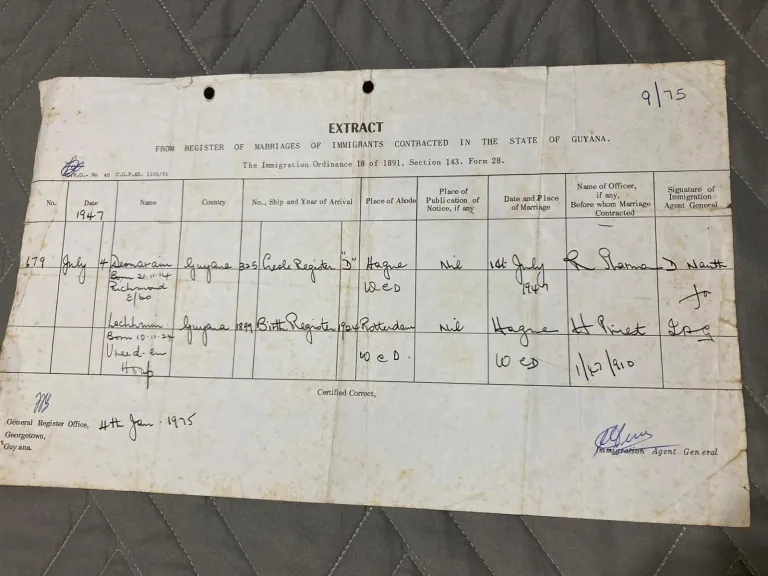 9/75
EXTRACT
FROM REGISTER OF MARRIAGES OF IMMIGRANTS CONTRACTED IN THE STATE OF GUYANA.
The Immigration Ordinance 18 of 1891, Section 143. Form 28.
R.O.- No 40 C.G.P.&S. 1535/72
No.
Date
1947
Name
Country
No., Ship and Year of Arrival
Place of Abode
Place of
Publication of
Notice, if any
Date and Place
of Marriage
Name of Officer,
if any,
Before whom Marriage
Contracted
Signature of
Immigration
Agent General
679 July 4 Deonarain Guyana 325 Creole Register "D" Hague Nil 1st July R Sharma D Nauth
Born 21-11-14
Richmond
E/bo
W C D
1947
for
Lachhmin Guyana 1899 Birth Register 1924 Rotterdam Nil Hague H Piret I A G
Born 10-11-24
Vreed-en
Hoop
W C D.
W C D
Certified Correct,
General Register Office, 4th Jan. 1975
Georgetown,
Guyana.
Immigration Agent General